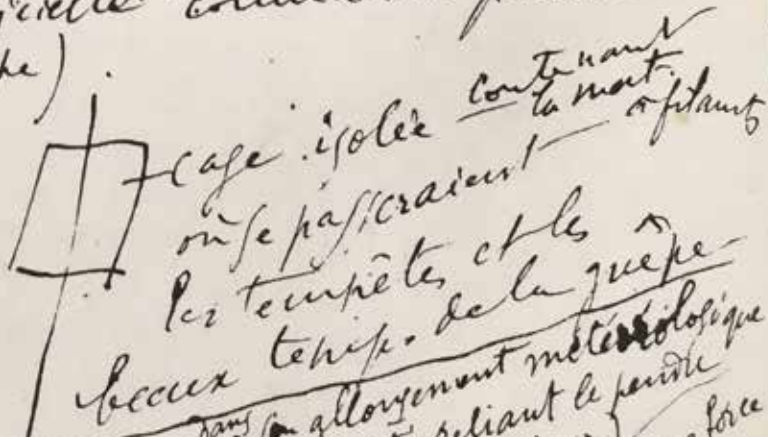 cage isolée contenant
la mat. à filamts
où se passeraient
les tempêtes et les
beaux temps. de la guêpe
dans son allongement météorologique
reliant le pendu
force